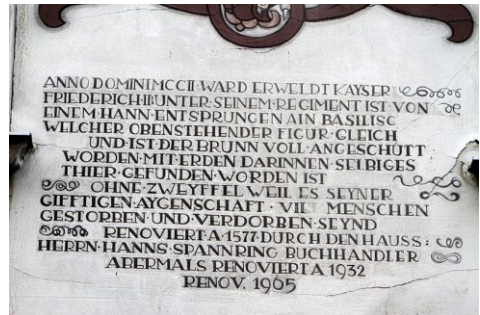 ANNO DOMINI MCCII · WARD ERWELDT KAYSER
FRIEDERICH·II·UNTER·SEINEM·REGIMENT IST·VON
EINEM·HANN·ENTSPRUNGEN AIN BASILISC
WELCHER OBENSTEHENDER FIGUR·GLEICH
UND·IST·DER BRUNN VOLL·ANGESCHUTT
WORDEN·MIT·ERDEN DARINNEN·SELBIGES
THIER·GEFUNDEN·WORDEN IST
OHNE·ZWEYFFEL WEIL ES SEYNER
GIFFTIGEN·AYGENSCHAFT·VIEL MENSCHEN
GESTORBEN·UND·VERDORBEN·SEYND
RENOVIERT·A·1577·DURCH DEN HAUSS:
HERRN·HANNS·SPANNRING BUCHHANDLER
ABERMALS RENOVIERT A 1932
RENOV. 1965